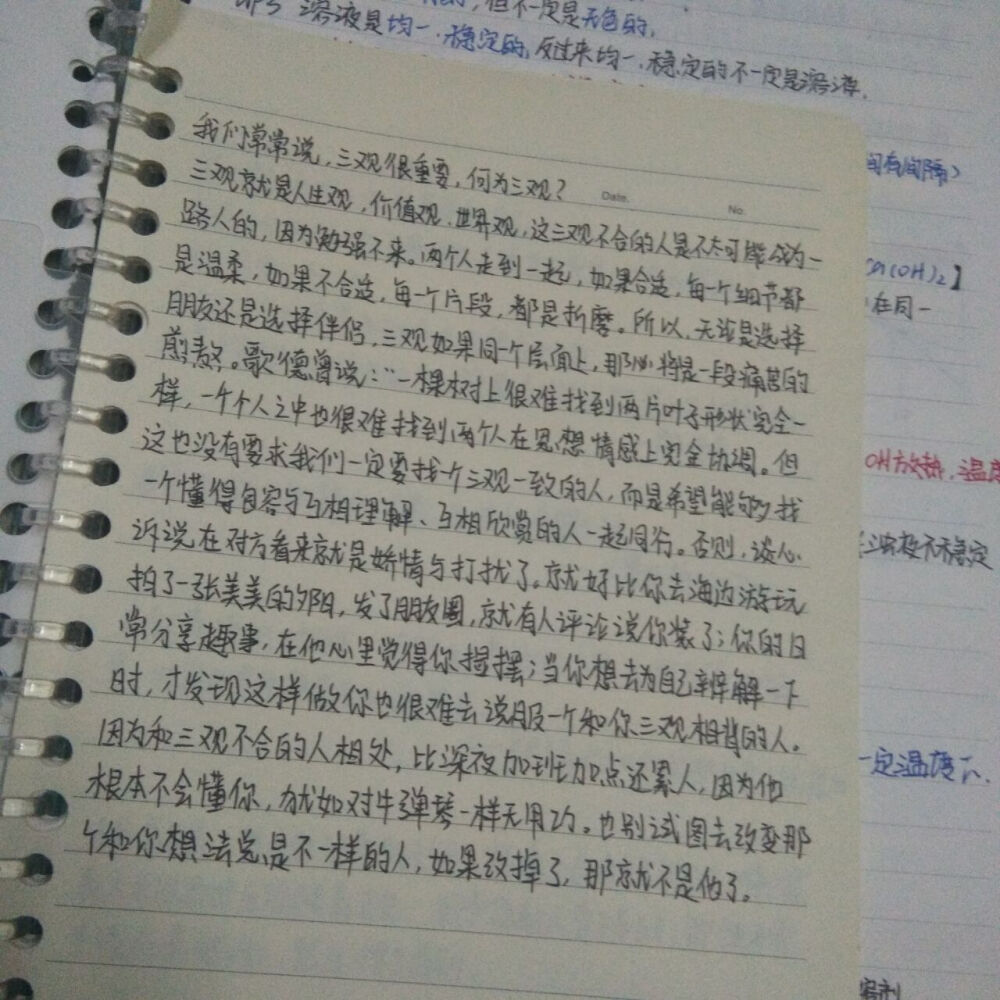 但不一定是无色的,
溶液是均一.稳定的,反过来均一.稳定的不一定是溶液.
我们常常说,三观很重要,何为三观?
Date.
No.
三观就是人生观,价值观.世界观,这三观不合的人是不太可能成为一
路人的,因为勉强不来。两个人走到一起,如果合适,每一个细节都
是温柔,如果不合适,每一个片段,都是折磨。所以,无论是选择
朋友还是选择伴侣,三观如果同一个层面上,那必将是一段痛苦的
煎熬。歌德曾说:“一棵树上很难找到两片叶子形状完全一
样,一千个人之中也很难找到两个人在思想情感上完全协调。但
这也没有要求我们一定要找个三观一致的人,而是希望能够找
一个懂得包容与互相理解、互相欣赏的人一起同行。否则,谈心
诉说在对方看来就是矫情与打扰了。就好比你去海边游玩
拍了一张美美的夕阳,发了朋友圈,就有人评论说你装了;你的日
常分享趣事,在他心里觉得你摆;当你想去为自己辨解一下
时,才发现这样做你也很难去说服一个和你三观相背的人。
因为和三观不合的人相处,比深夜加班加点还累人,因为他
根本不会懂你,犹如对牛弹琴一样无用功。也别试图去改变那
个和你想法总是不一样的人,如果改掉了,那就不是他了。
间有间隔>
Ca(OH)₂】
在同一
OH放热.温度
浊液不稳定
一定温度下.
溶剂